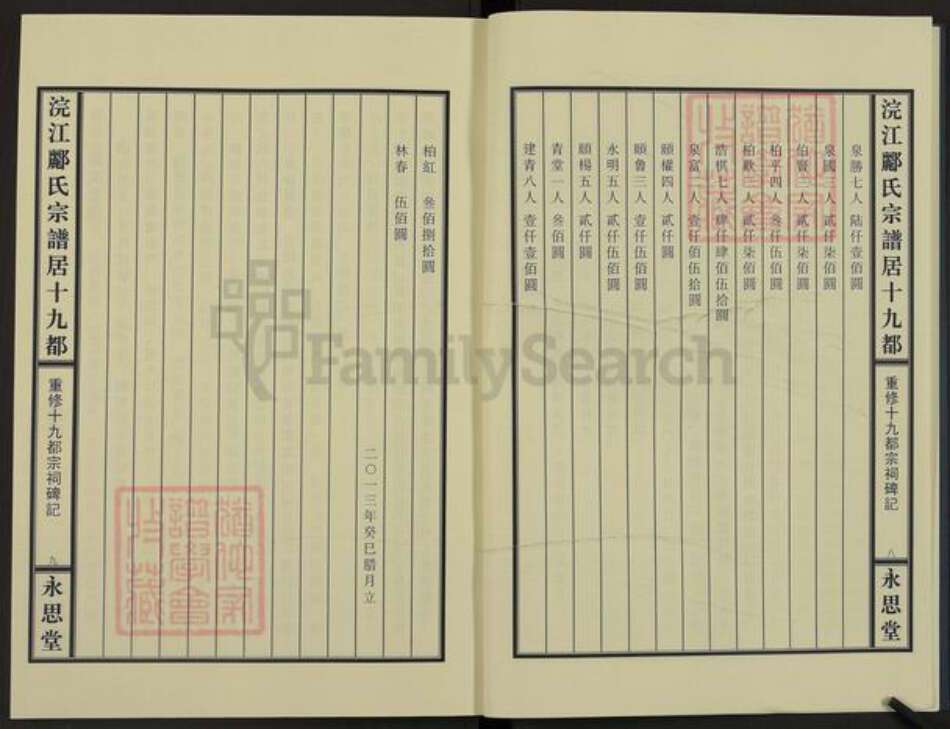 浣江酈氏宗譜居十九都
重修十九都宗祠碑記
八
永思堂
泉勝七人 陸仟壹佰圓
泉國 人 貳仟柒佰圓
伯賢 人 貳仟柒佰圓
柏平四人 叁仟伍佰圓
柏歡 人 貳仟柒佰圓
浩棋七人 肆仟肆佰伍拾圓
泉富 人 壹仟 佰伍拾圓
頤權四人 貳仟圓
頤魯三人 壹仟伍佰圓
永明五人 貳仟伍佰圓
頤楊五人 貳仟圓
青堂一人 叁佰圓
建青八人 壹仟壹佰圓
柏紅 叁佰捌拾圓
林春 伍佰圓
二〇一三年癸巳腊月立
浣江酈氏宗譜居十九都
重修十九都宗祠碑記
九
永思堂
FamilySearch